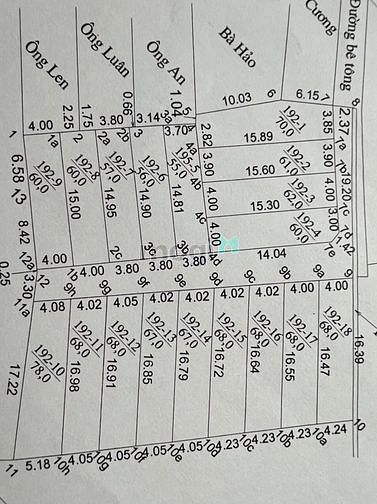 Ông Len
Ông Luân
Ông An
Bà Hảo
Cương
Đường bê tông
10.03
6
6.15
7
8
2.25
1.75
0.66
1.04
5
1
4.00
1a
2
3.80
2a
2b
3.14
3
3.70
4a
4b
4c
4d
2.82
3.90
4.00
4.00
192-1
70,0
15.89
3.85
2.37
7a
192-2
61,0
15.60
3.90
7b
19.20
192-3
62,0
15.30
4.00
7c
192-4
60,0
14.04
3.00
7d
1.42
7e
6.58
13
8.42
192-9
60,0
15.00
192-8
60,0
14.95
192-7
57,0
14.90
192-6
56,0
14.81
195-5
55,0
2c
3c
3b
12a
4.00
12
1b
4.00
3.80
3.80
3.80
0.25
3.30
11a
9h
9g
9f
9e
9d
9c
9b
9a
9
4.08
4.02
4.05
4.02
4.02
4.02
4.02
4.00
4.00
192-10
78,0
16.98
192-11
68,0
16.91
192-12
68,0
16.85
192-13
67,0
16.79
192-14
67,0
16.72
192-15
68,0
16.64
192-16
68,0
16.55
192-17
68,0
16.47
192-18
68,0
16.39
17.22
11
5.18
10h
4.05
10g
4.05
10f
4.05
10e
4.05
10d
4.23
10c
4.23
10b
4.23
10a
4.24
10